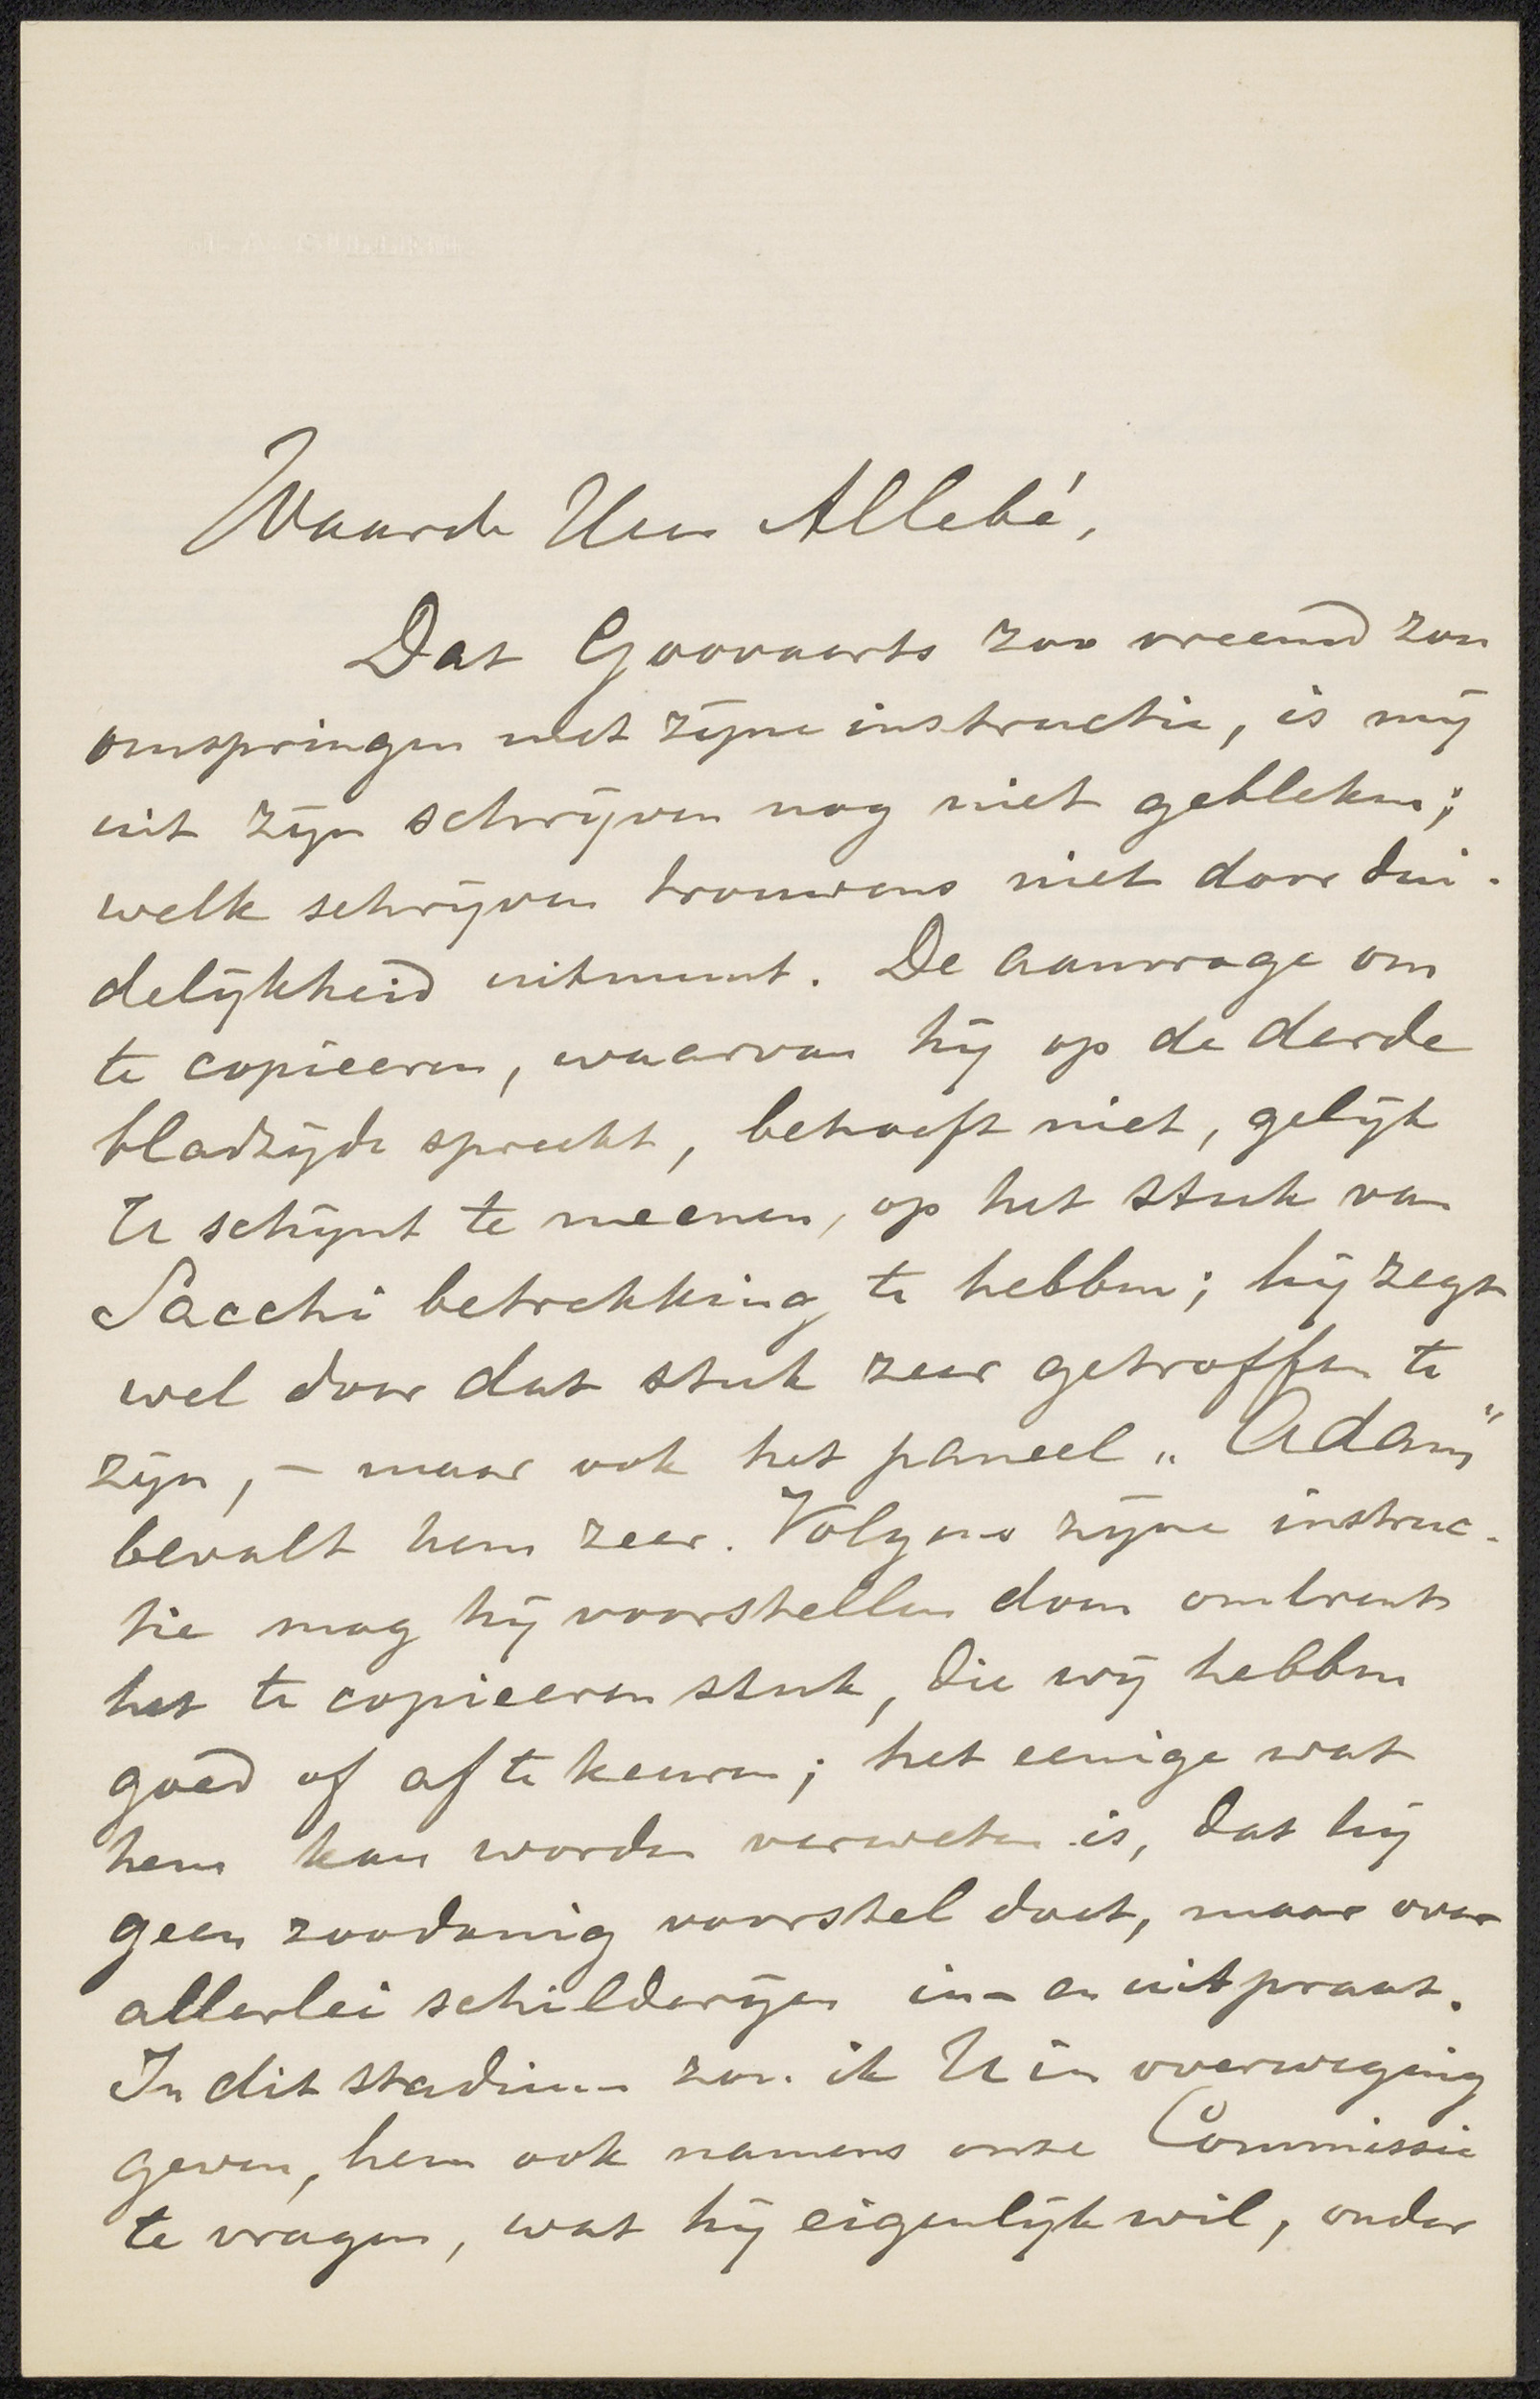 Waarde Heer Allebé,
Dat Goovaerts zoo vreemd zou
omspringen met zijne instructie, is mij
uit zijn schrijven nog niet gebleken;
welk schrijven trouwens niet door dui-
delijkheid uitmunt. De aanvrage om
te copieeren, waarvan hij op de derde
bladzijde spreekt, behoeft niet, gelijk
U schijnt te meenen, op het stuk van
Sacchi betrekking te hebben; hij zegt
wel door dat stuk zeer getroffen te
zijn, – maar ook het paneel „Adam"
bevalt hem zeer. Volgens zijne instruc-
tie mag hij voorstellen doen omtrent
het te copieeren stuk, die wij hebben
goed of af te keuren; het eenige wat
hem kan worden verweten is, dat hij
geen zoodanig voorstel doet, maar over
allerlei schilderijen in- en uitpraat.
In dit stadium zou ik U in overweging
geven, hem ook namens onze Commissie
te vragen, wat hij eigenlijk wil, onder